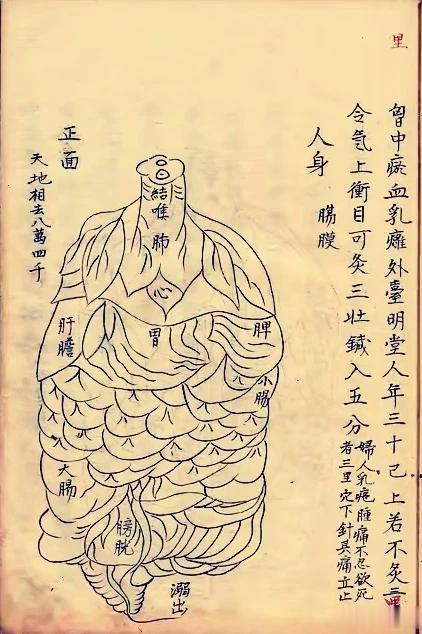 里
胷中瘀血乳癰外臺明堂人年三十已上若不灸三里
令氣上衝目可灸三壯鍼入五分婦人乳疤腫痛不忍欲死
者三里穴下針其痛立止
人身
腸膜
正面
天地相去八萬四千
結喉
肺
心
胃
脾
肝膽
小腸
大腸
膀胱
溺出